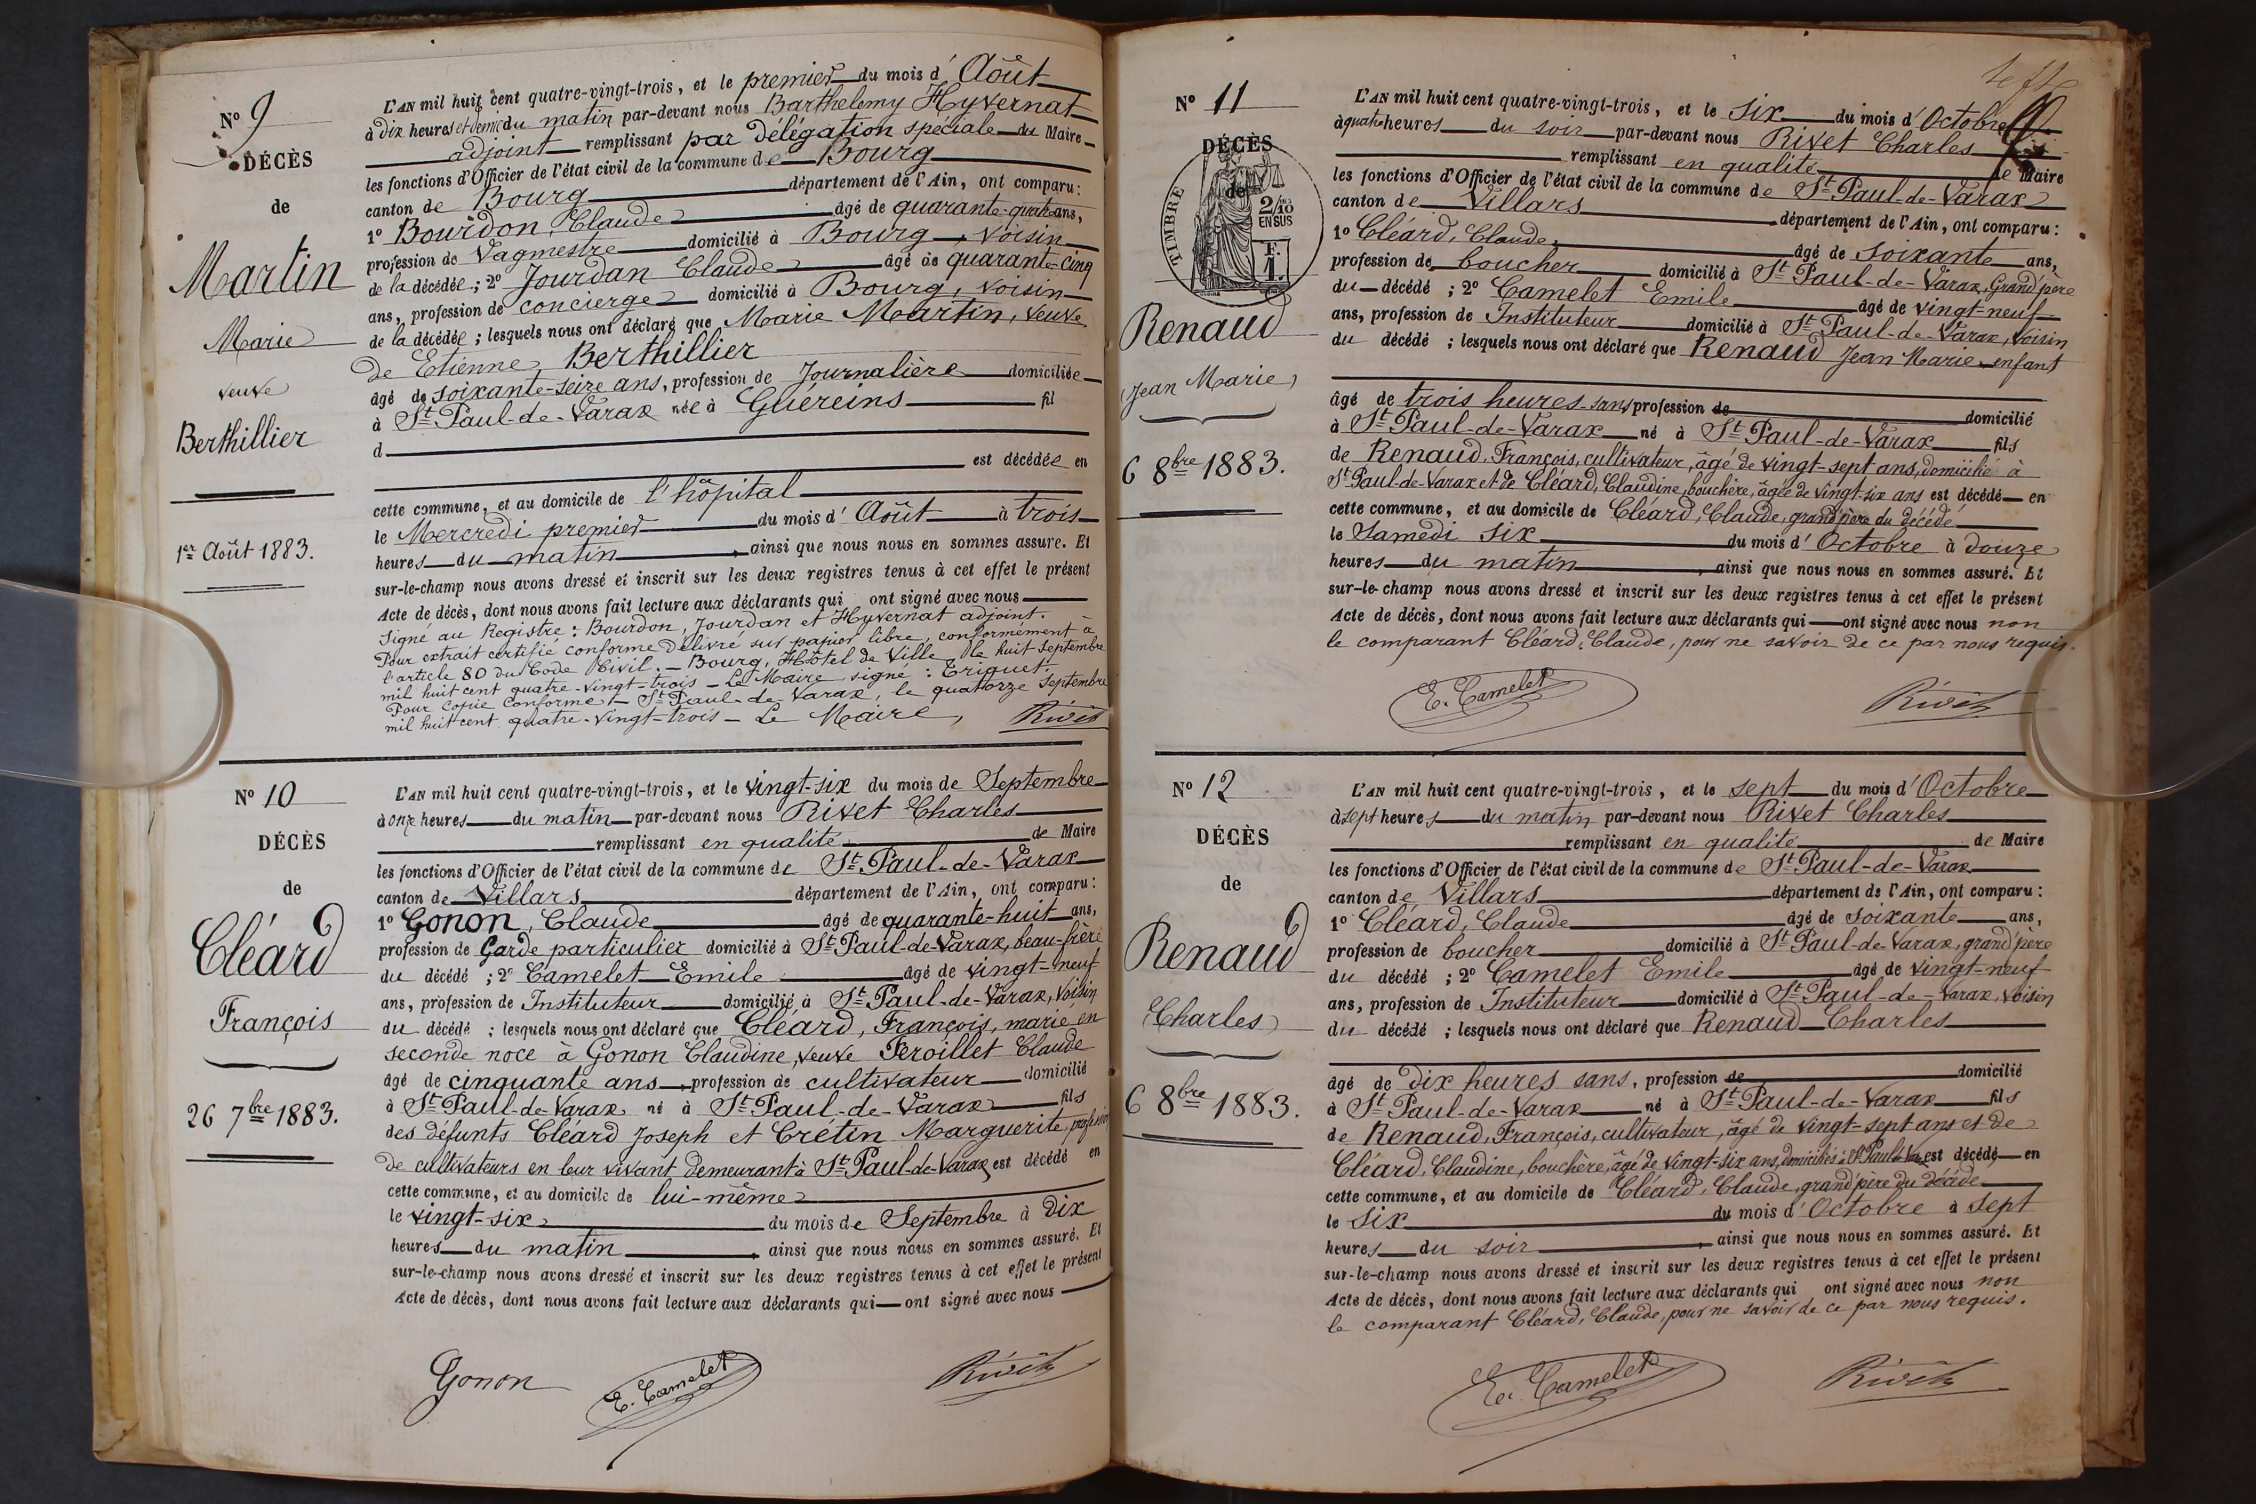 N° 9
DÉCÈS
de
Martin
Marie
veuve
Berthillier
1er Août 1883.
L'AN mil huit cent quatre-vingt-trois, et le premier du mois d' Août
à dix heures et demie du matin par-devant nous Barthelemy Hyvernat
adjoint remplissant par délégation spéciale du Maire
les fonctions d'Officier de l'état civil de la commune de Bourg
canton de Bourg département de l'Ain, ont comparu :
1° Bourdon Claude âgé de quarante-quatre ans,
profession de Vagmestre domicilié à Bourg, voisin
de la décédée ; 2° Jourdan Claude âgé de quarante-cinq
ans, profession de concierge domicilié à Bourg, voisin
de la décédée ; lesquels nous ont déclaré que Marie Martin, veuve
de Etienne Berthillier
âgé de soixante-seize ans, profession de Journalière domiciliée
à St Paul-de-Varax née à Guéreins fil
d
est décédée en
cette commune, et au domicile de l'hôpital
le Mercredi premier du mois d' Août à trois
heures du matin, ainsi que nous nous en sommes assuré. Et
sur-le-champ nous avons dressé et inscrit sur les deux registres tenus à cet effet le présent
Acte de décès, dont nous avons fait lecture aux déclarants qui ont signé avec nous
Signé au Registre : Bourdon, Jourdan et Hyvernat adjoint.
Pour extrait certifié conforme Délivré sur papier libre, conformément à
l'article 80 du Code Civil. — Bourg, Hôtel de Ville, le huit Septembre
mil huit cent quatre-vingt-trois — Le Maire, signé : Triquet.
Pour copie conforme — St Paul-de-Varax, le quatorze Septembre
mil huit cent quatre-vingt-trois — Le Maire,
Rivet
N° 10
DÉCÈS
de
Cléard
François
26 7bre 1883.
L'AN mil huit cent quatre-vingt-trois, et le vingt-six du mois de Septembre
à onze heures du matin par-devant nous Rivet Charles
remplissant en qualité de Maire
les fonctions d'Officier de l'état civil de la commune de St Paul-de-Varax
canton de Villars département de l'Ain, ont comparu :
1° Gonon, Claude âgé de quarante-huit ans,
profession de Garde particulier domicilié à St Paul-de-Varax, beau-frère
du décédé ; 2° Camelet Emile âgé de vingt-neuf
ans, profession de Instituteur domicilié à St Paul-de-Varax, voisin
du décédé ; lesquels nous ont déclaré que Cléard, François, marié en
seconde noce à Gonon Claudine, veuve Feroillet Claude
âgé de cinquante ans, profession de cultivateur domicilié
à St Paul-de-Varax né à St Paul-de-Varax fils
des défunts Cléard Joseph et Crétin Marguerite, profession
de cultivateurs en leur vivant demeurant à St Paul-de-Varax est décédé en
cette commune, et au domicile de lui-même
le vingt-six du mois de Septembre à dix
heures du matin, ainsi que nous nous en sommes assuré. Et
sur-le-champ nous avons dressé et inscrit sur les deux registres tenus à cet effet le présent
Acte de décès, dont nous avons fait lecture aux déclarants qui ont signé avec nous
Gonon E. Camelet Rivet
N° 11
DÉCÈS
de
TIMBRE
2/10
EN SUS
F.
1.
Renaud
(Jean Marie)
6 8bre 1883.
L'AN mil huit cent quatre-vingt-trois, et le six du mois d' Octobre
à quatre heures du soir par-devant nous Rivet Charles
remplissant en qualité de Maire
les fonctions d'Officier de l'état civil de la commune de St Paul-de-Varax
canton de Villars département de l'Ain, ont comparu :
1° Cléard, Claude, âgé de soixante ans,
profession de boucher domicilié à St Paul-de-Varax, Grand'père
du décédé ; 2° Camelet Emile âgé de vingt-neuf
ans, profession de Instituteur domicilié à St Paul-de-Varax, voisin
du décédé ; lesquels nous ont déclaré que Renaud Jean Marie enfant
âgé de trois heures sans profession de domicilié
à St Paul-de-Varax né à St Paul-de-Varax fils
de Renaud, François, cultivateur, âgé de vingt-sept ans, domicilié à
St Paul-de-Varax et de Cléard, Claudine, bouchère, âgée de vingt-six ans est décédé en
cette commune, et au domicile de Cléard, Claude, grand'père du décédé
le Samedi six du mois d' Octobre à douze
heures du matin, ainsi que nous nous en sommes assuré. Et
sur-le-champ nous avons dressé et inscrit sur les deux registres tenus à cet effet le présent
Acte de décès, dont nous avons fait lecture aux déclarants qui ont signé avec nous non
le comparant Cléard, Claude, pour ne savoir de ce par nous requis.
E. Camelet Rivet
N° 12
DÉCÈS
de
Renaud
(Charles)
6 8bre 1883.
L'AN mil huit cent quatre-vingt-trois, et le sept du mois d' Octobre
à sept heures du matin par-devant nous Rivet Charles
remplissant en qualité de Maire
les fonctions d'Officier de l'état civil de la commune de St Paul-de-Varax
canton de Villars département de l'Ain, ont comparu :
1° Cléard, Claude âgé de soixante ans,
profession de boucher domicilié à St Paul-de-Varax, grand'père
du décédé ; 2° Camelet Emile âgé de vingt-neuf
ans, profession de Instituteur domicilié à St Paul-de-Varax, voisin
du décédé ; lesquels nous ont déclaré que Renaud Charles
âgé de dix heures sans, profession de domicilié
à St Paul-de-Varax né à St Paul-de-Varax fils
de Renaud, François, cultivateur, âgé de vingt-sept ans et de
Cléard, Claudine, bouchère, âgé de vingt-six ans, domiciliés à St Paul-de-Varax est décédé en
cette commune, et au domicile de Cléard, Claude, grand'père du décédé
le six du mois d' Octobre à sept
heures du soir, ainsi que nous nous en sommes assuré. Et
sur-le-champ nous avons dressé et inscrit sur les deux registres tenus à cet effet le présent
Acte de décès, dont nous avons fait lecture aux déclarants qui ont signé avec nous non
le comparant Cléard, Claude, pour ne savoir de ce par nous requis.
E. Camelet Rivet